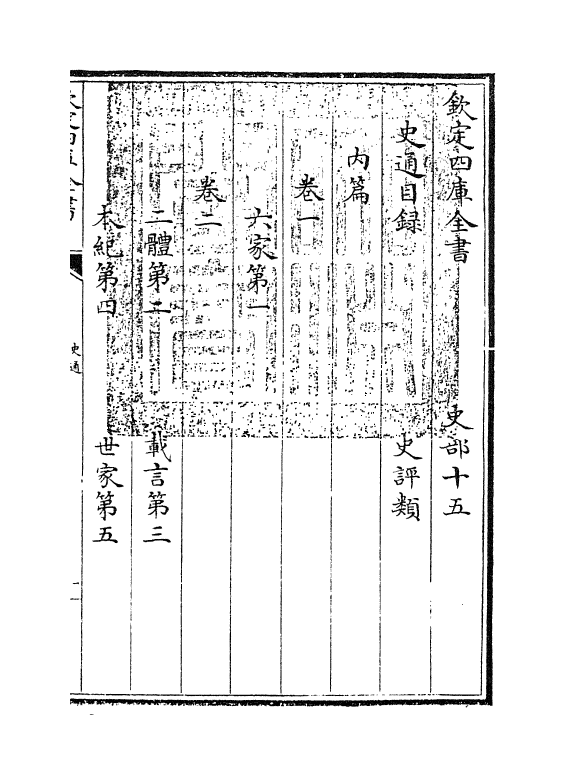 欽定四庫全書 史部十五
史通目録 史評類
内篇
卷一
六家第一
卷二
二體第二 載言第三
本紀第四 世家第五
欽定四庫全書 史通